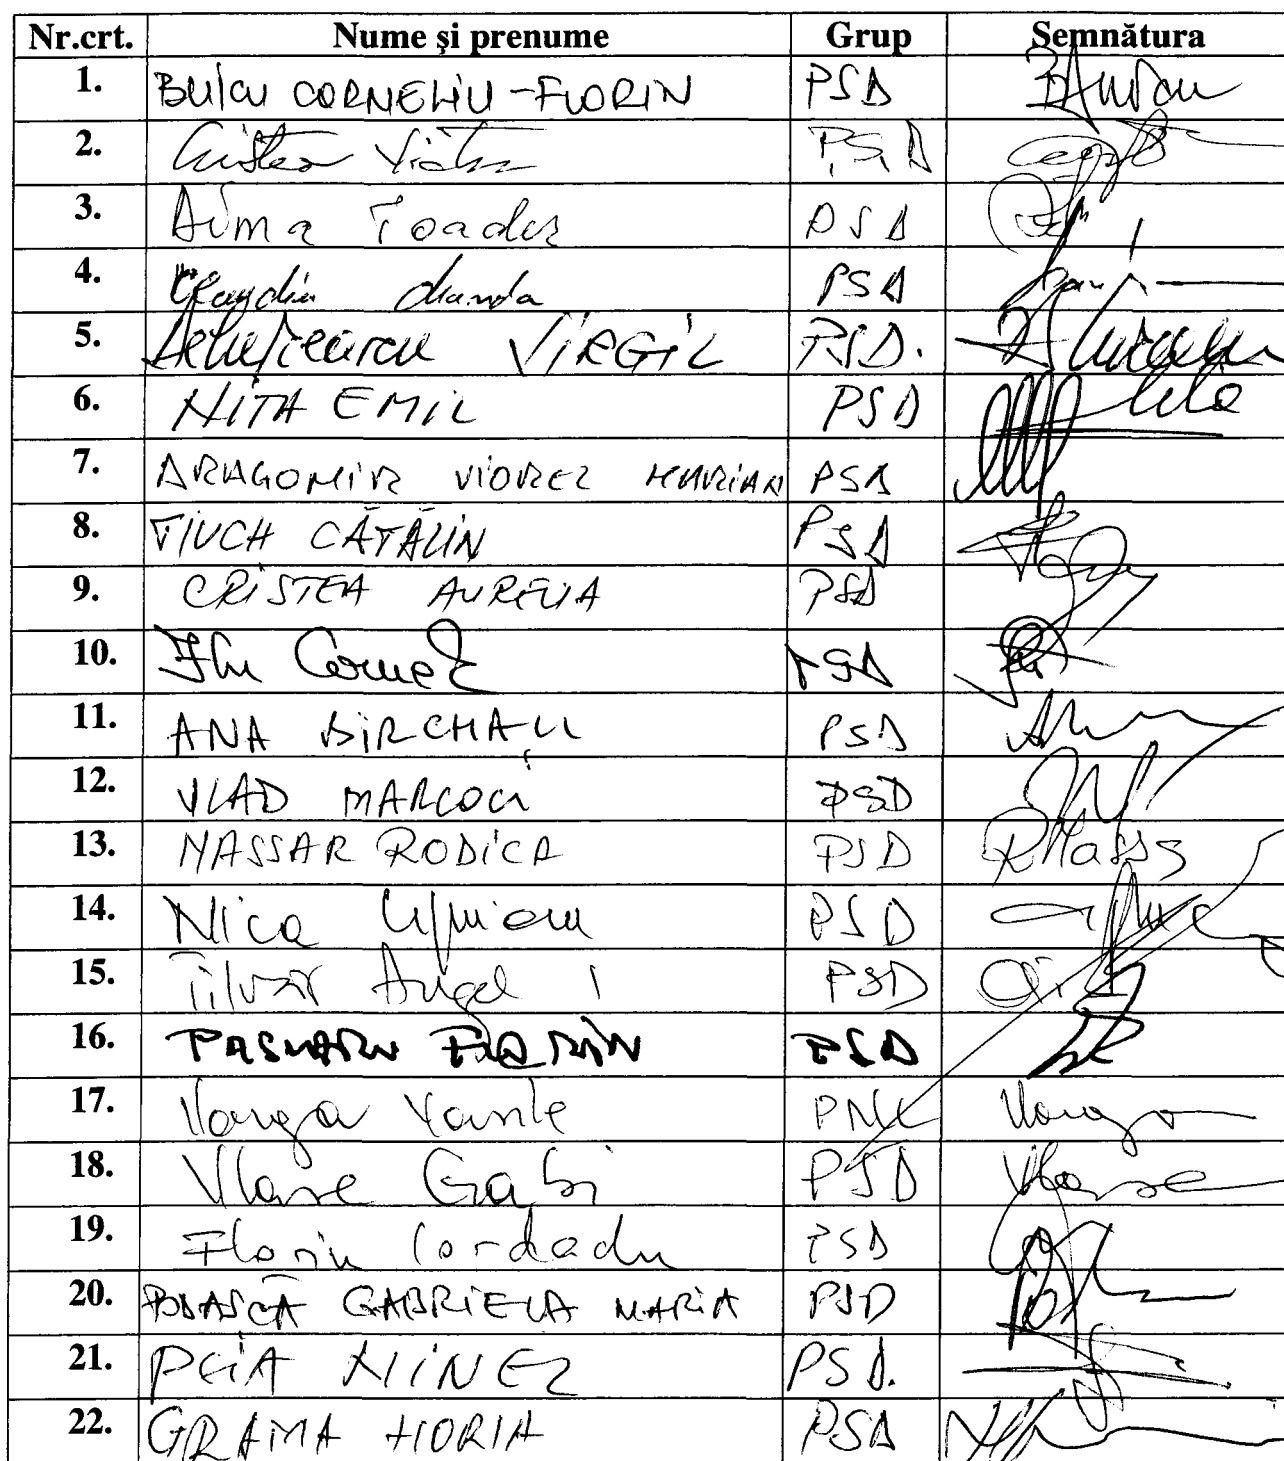 Nr.crt. Nume și prenume Grup Semnătura
1. BUICU CORNELIU-FLORIN PSD
2. Cristea Victor PSD
3. Dîma Toader PSD
4. Claudiu Manda PSD
5. VIRGIL PSD.
6. NITA EMIL PSD
7. DRAGOMIR VIOREL MARIAN PSD
8. TIUCH CĂTĂLIN PSD
9. CRISTEA AURELIA PSD
10. Itu Cornel PSD
11. ANA BIRCHALL PSD
12. VLAD MARCOCI PSD
13. NASSAR RODICA PSD
14. Nica Ciprian PSD
15. Tîlvăr Angel PSD
16. PASLARU FLORIN PSD
17. Varga Vasile PNL Varga
18. Vlase Gabi PSD Vlase
19. Florin Iordache PSD
20. PODAȘCĂ GABRIELA MARIA PSD
21. PEIA NINEL PSD.
22. GRAMA HORIA PSD